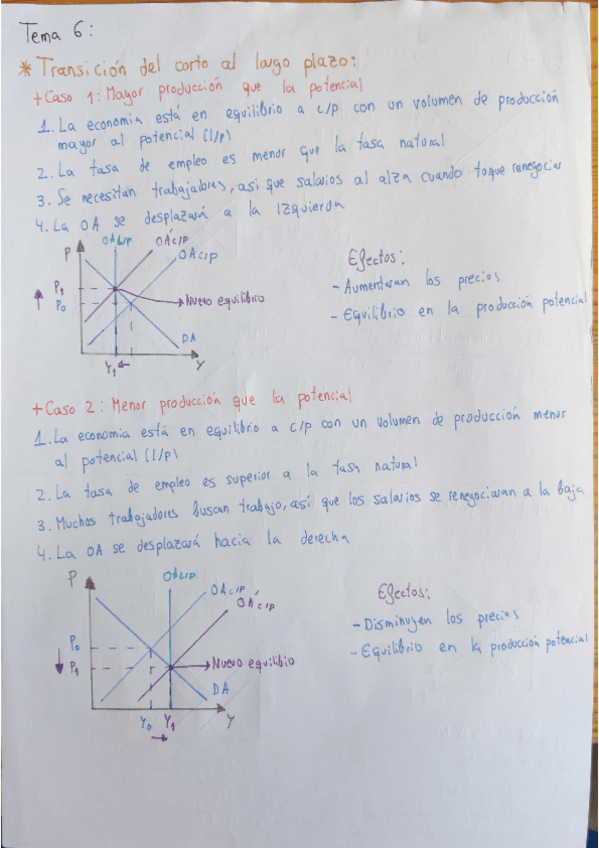 Tema 6:
* Transición del corto al largo plazo:
+ Caso 1: Mayor producción que la potencial
1. La economia está en equilibrio a c/p con un volumen de producción
mayor al potencial (l/p)
2. La tasa de empleo es menor que la tasa natural
3. Se necesitan trabajadores, asi que salarios al alza cuando toque renegociar
4. La OA se desplazará a la izquierda
P
OAL/p
OA'c/p
OAc/p
P1
P0
Nuevo equilibrio
DA
Y1
Y
Efectos:
- Aumentaran los precios
- Equilibrio en la producción potencial
+ Caso 2: Menor producción que la potencial
1. La economia está en equilibrio a c/p con un volumen de producción menor
al potencial (l/p)
2. La tasa de empleo es superior a la tasa natural
3. Muchos trabajadores busan trabajo, asi que los salarios se renegociaran a la baja
4. La OA se desplazará hacia la derecha
P
OAc/p
OA'c/p
P0
P1
Nuevo equilibrio
DA
Y0
Y1
Y
Efectos:
- Disminuyen los precios
- Equilibrio en la producción potencial